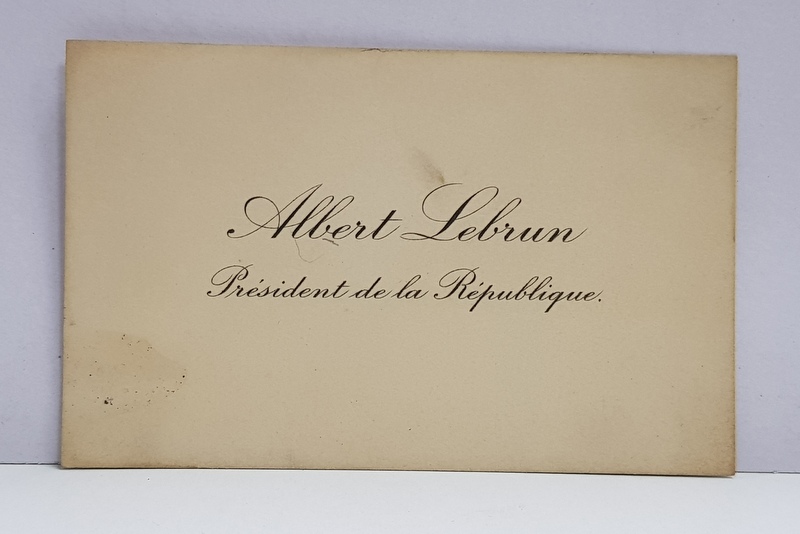 Albert Lebrun
Président de la République.